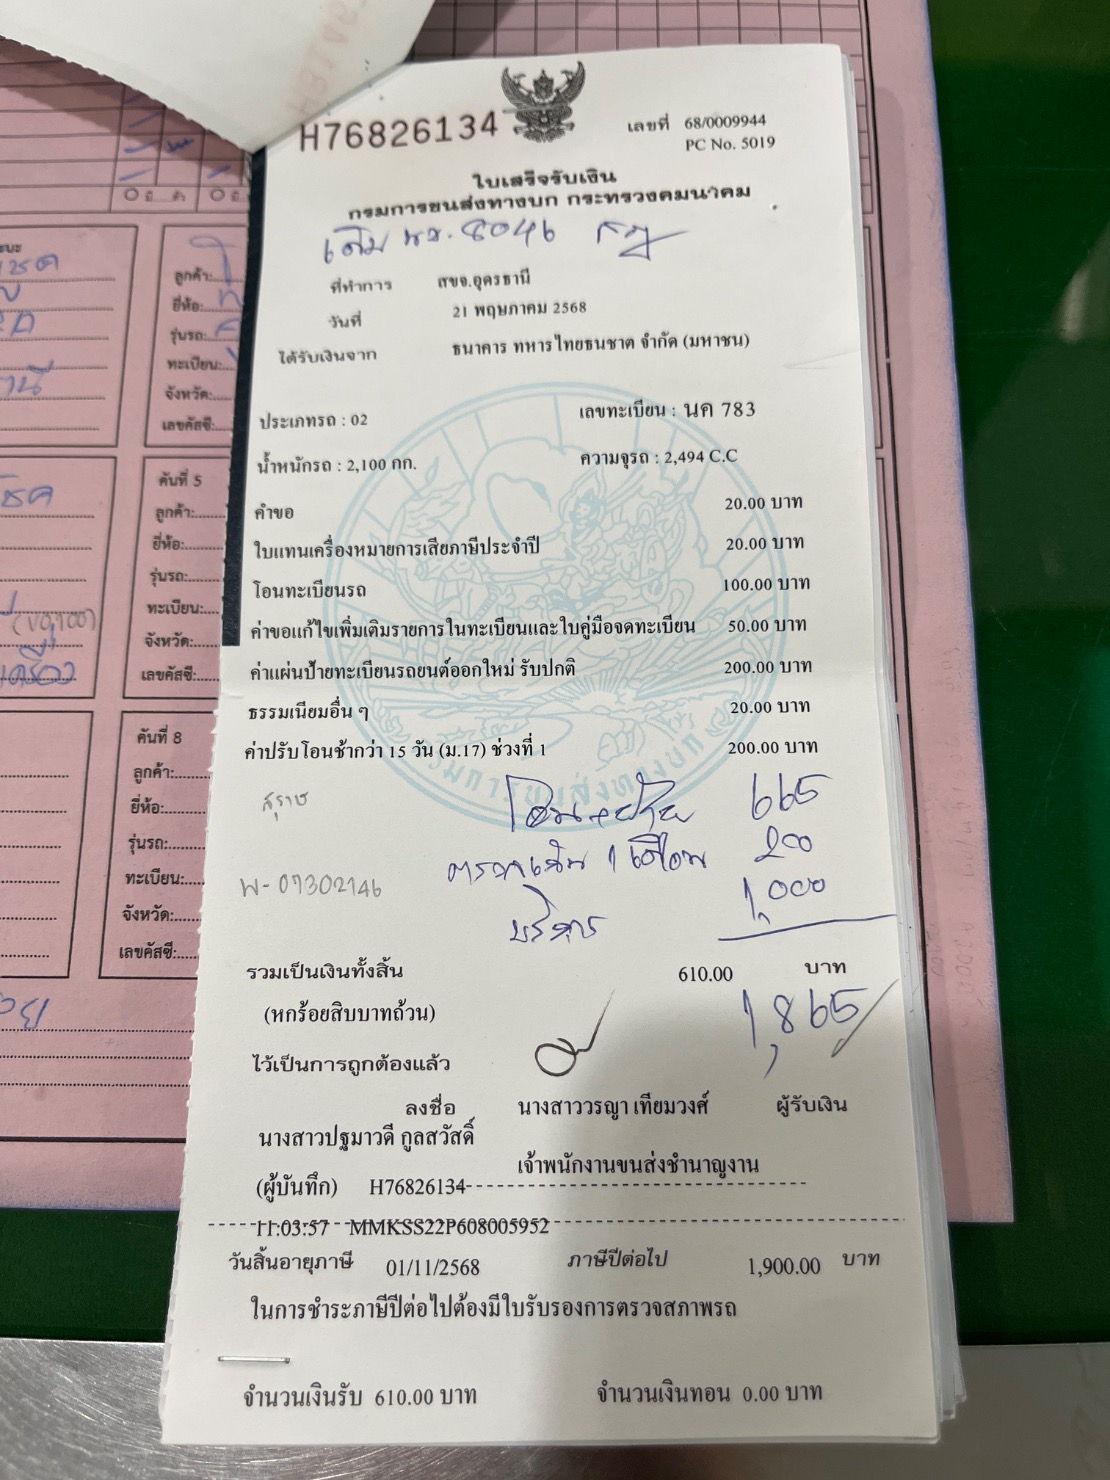 H76826134
เลขที่ 68/0009944
PC No. 5019
ใบเสร็จรับเงิน
กรมการขนส่งทางบก กระทรวงคมนาคม
เดิม 8046
ที่ทำการ สขจ.อุดรธานี
วันที่ 21 พฤษภาคม 2568
ได้รับเงินจาก ธนาคาร ทหารไทยธนชาต จำกัด (มหาชน)
ประเภทรถ : 02 เลขทะเบียน : นค 783
น้ำหนักรถ : 2,100 กก. ความจุรถ : 2,494 C.C
คำขอ 20.00 บาท
ใบแทนเครื่องหมายการเสียภาษีประจำปี 20.00 บาท
โอนทะเบียนรถ 100.00 บาท
ค่าขอแก้ไขเพิ่มเติมรายการในทะเบียนและใบคู่มือจดทะเบียน 50.00 บาท
ค่าแผ่นป้ายทะเบียนรถยนต์ออกใหม่ รับปกติ 200.00 บาท
ธรรมเนียมอื่น ๆ 20.00 บาท
ค่าปรับโอนช้ากว่า 15 วัน (ม.17) ช่วงที่ 1 200.00 บาท
กรมการขนส่งทางบก
โอน+ป้าย 665
1 เดือน 200
W-07302146
บริการ 1,000
รวมเป็นเงินทั้งสิ้น 610.00 บาท
(หกร้อยสิบบาทถ้วน)
1,865/
ไว้เป็นการถูกต้องแล้ว
ลงชื่อ นางสาววรญา เทียมวงศ์ ผู้รับเงิน
นางสาวปฐมาวดี กูลสวัสดิ์
เจ้าพนักงานขนส่งชำนาญงาน
(ผู้บันทึก) H76826134
11:03:57 MMKSS22P608005952
วันสิ้นอายุภาษี 01/11/2568 ภาษีปีต่อไป 1,900.00 บาท
ในการชำระภาษีปีต่อไปต้องมีใบรับรองการตรวจสภาพรถ
จำนวนเงินรับ 610.00 บาท จำนวนเงินทอน 0.00 บาท
ลูกค้า:
ยี่ห้อ:
รุ่นรถ:
ทะเบียน:
จังหวัด:
เลขคัสซี:
คันที่ 5
ลูกค้า:
ยี่ห้อ:
รุ่นรถ:
ทะเบียน:
จังหวัด:
เลขคัสซี:
คันที่ 8
ลูกค้า:
ยี่ห้อ:
รุ่นรถ:
ทะเบียน:
จังหวัด:
เลขคัสซี: